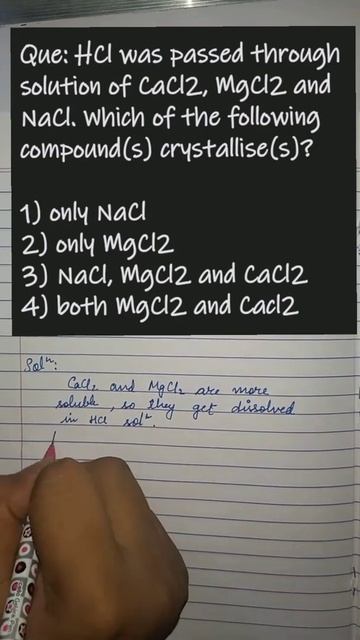 Que: HCl was passed through
solution of CaCl2, MgCl2 and
NaCl. Which of the following
compound(s) crystallise(s)?
1) only NaCl
2) only MgCl2
3) NaCl, MgCl2 and CaCl2
4) both MgCl2 and Cacl2
Solⁿ:
CaCl₂ and MgCl₂ are more
soluble, so they get dissolved
in HCl solⁿ.